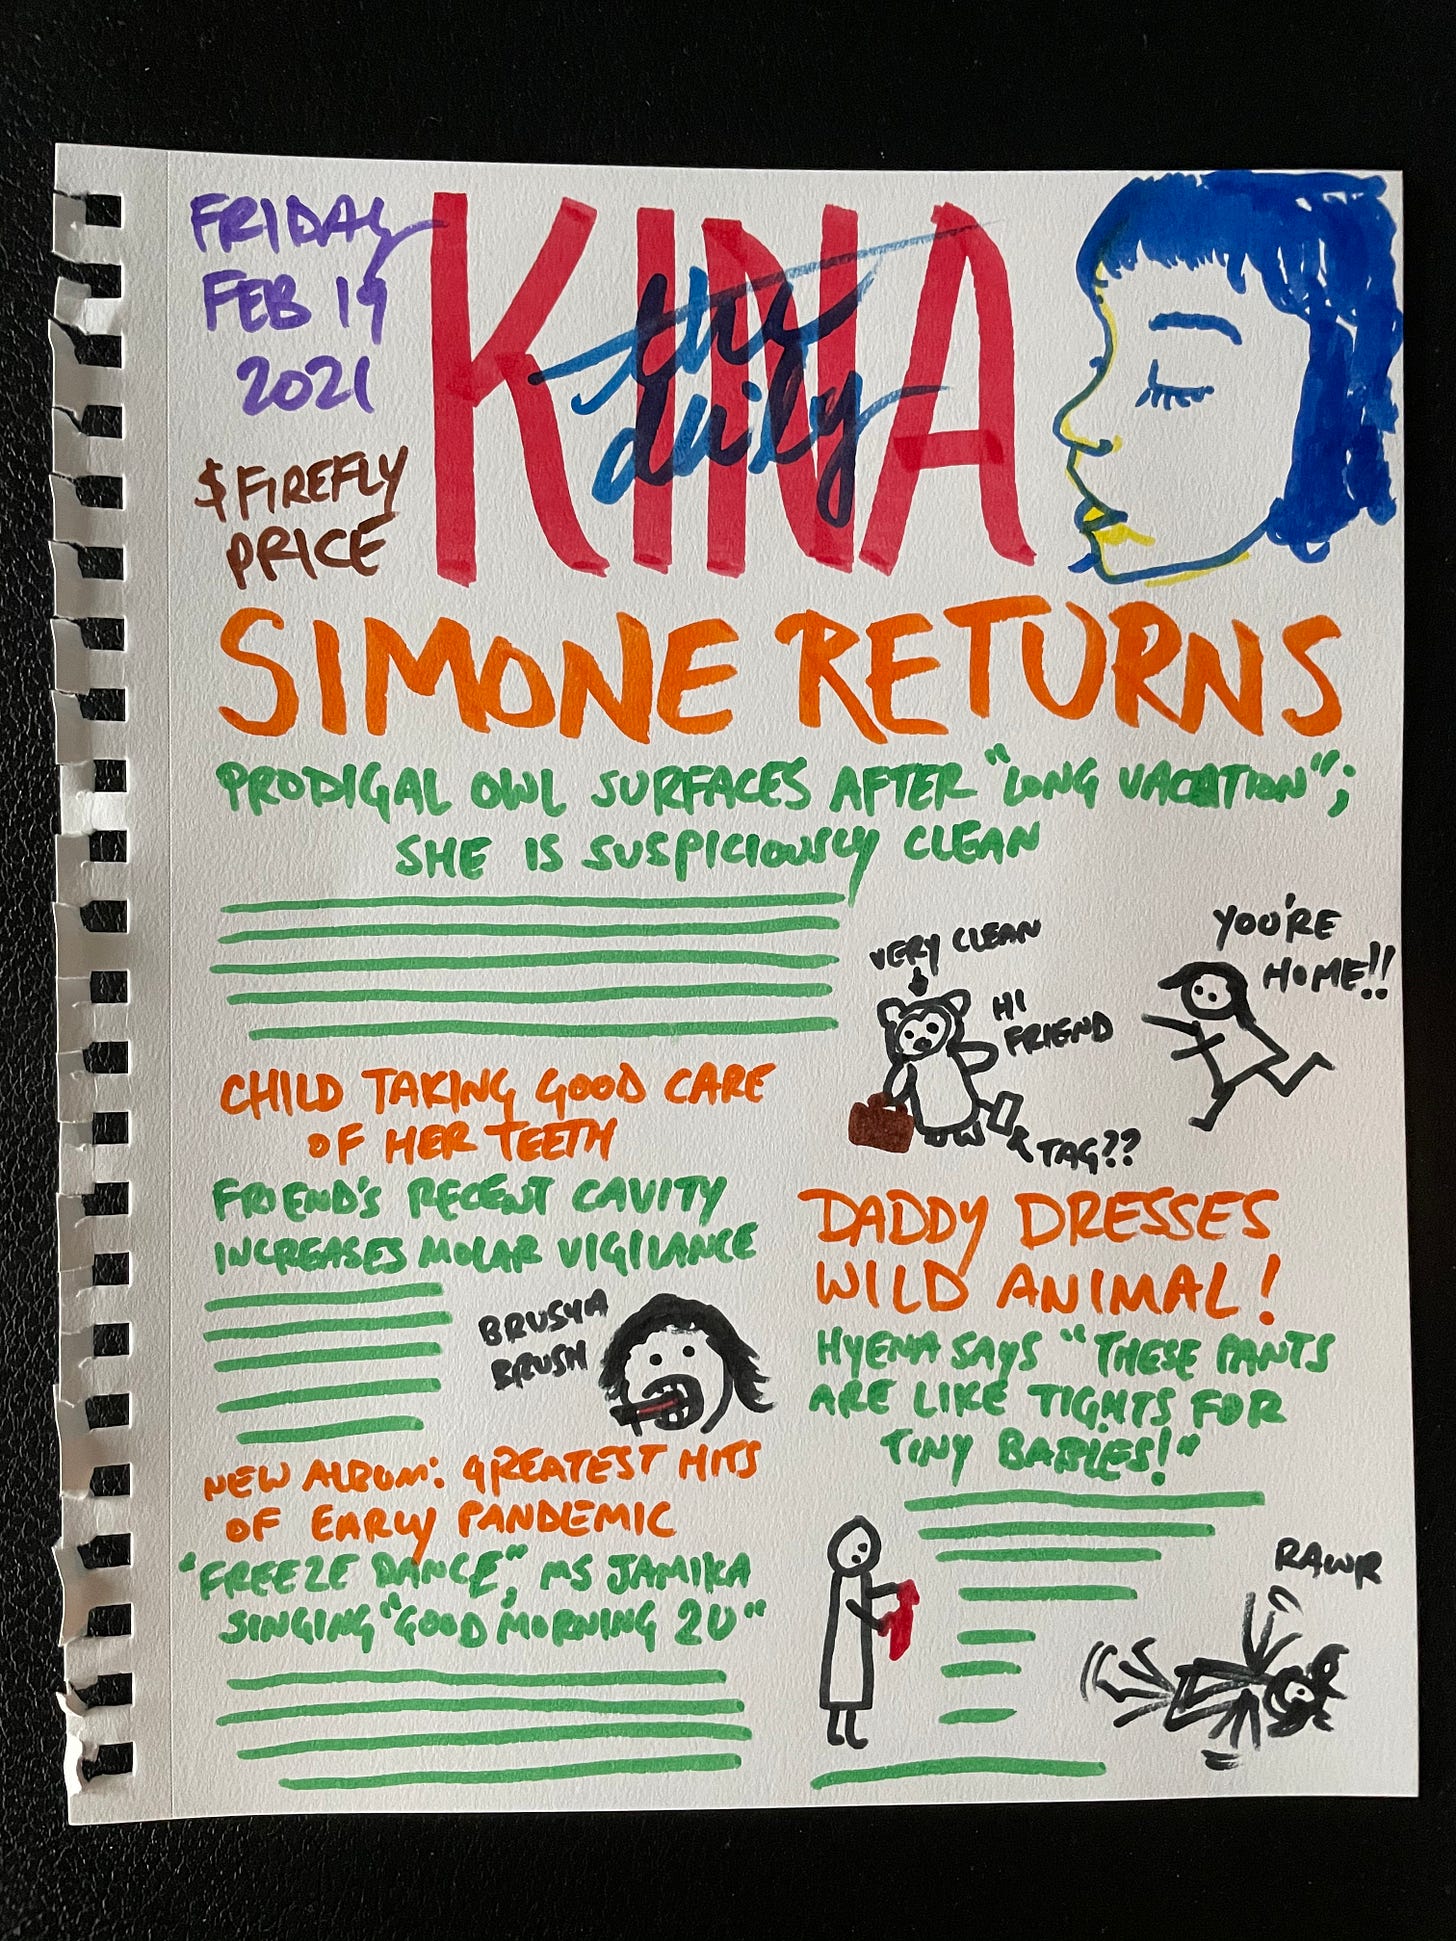 FRIDAY
FEB 19
2021
$ FIREFLY
PRICE
the
daily
KINA
SIMONE RETURNS
PRODIGAL OWL SURFACES AFTER "LONG VACATION";
SHE IS SUSPICIOUSLY CLEAN
VERY CLEAN
HI
FRIEND
TAG??
YOU'RE
HOME!!
CHILD TAKING GOOD CARE
OF HER TEETH
FRIEND'S RECENT CAVITY
INCREASES MOLAR VIGILANCE
BRUSHA
BRUSH
NEW ALBUM: GREATEST HITS
OF EARLY PANDEMIC
"FREEZE DANCE", MS JAMIKA
SINGING "GOOD MORNING 2U"
DADDY DRESSES
WILD ANIMAL!
HYENA SAYS "THESE PANTS
ARE LIKE TIGHTS FOR
TINY BABIES!"
RAWR